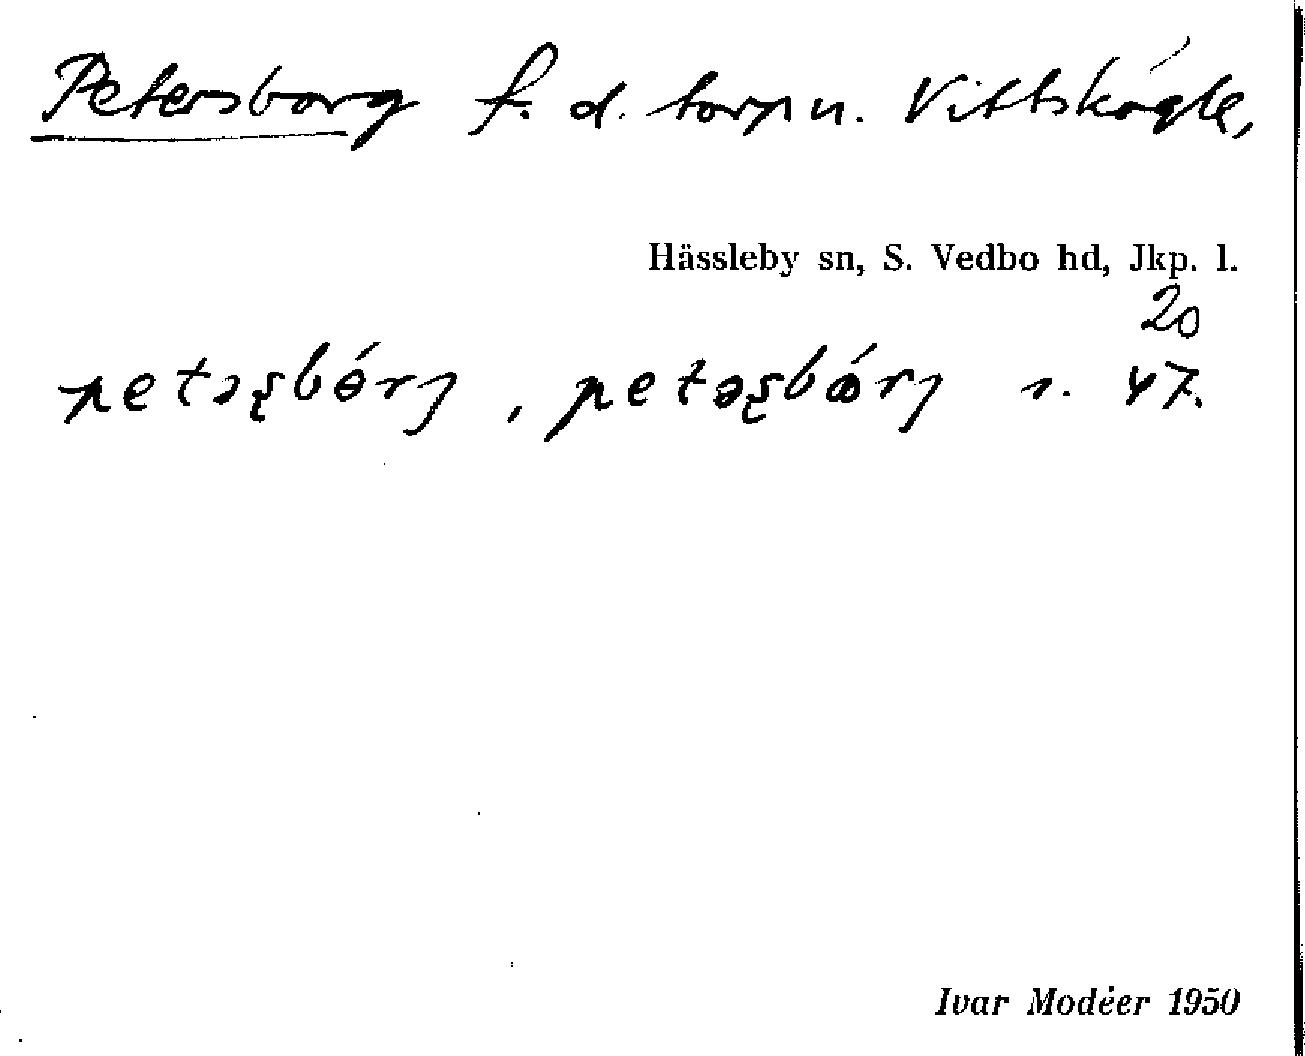 Petersborg f. d. torp u. Vittskögle,
Hässleby sn, S. Vedbo hd, Jkp. l.
20
petəʂbɵ́rj, petəʂbǿrj s. 47.
Ivar Modéer 1950